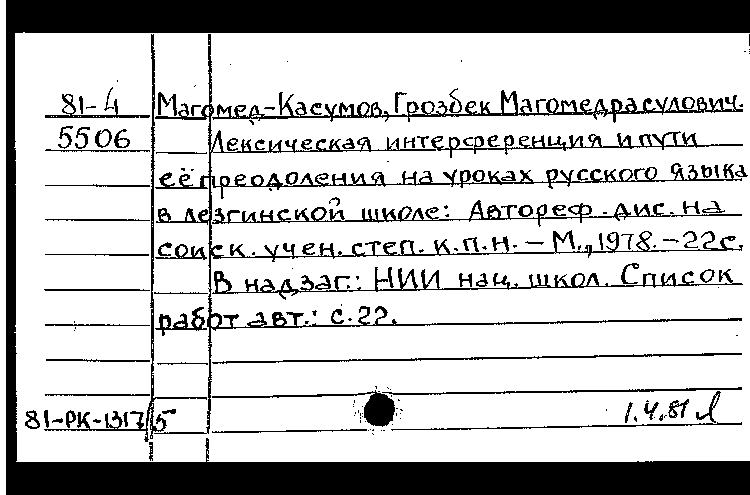 81-4 Магомед-Касумов, Грозбек Магомедрасулович.
5506 Лексическая интерференция и пути
её преодоления на уроках русского языка
в лезгинской школе: Автореф. дис. на
соиск. учен. степ. к.п.н. – М., 1978. – 22с.
В надзаг.: НИИ нац. школ. Список
работ авт.: с. 22.
81-РК-1317/5 1.4.81 Л